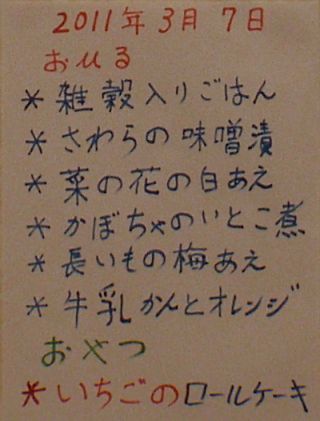 2011年3月7日
おひる
* 雑穀入りごはん
* さわらの味噌漬
* 菜の花の白あえ
* かぼちゃのいとこ煮
* 長いもの梅あえ
* 牛乳かんとオレンジ
おやつ
* いちごのロールケーキ